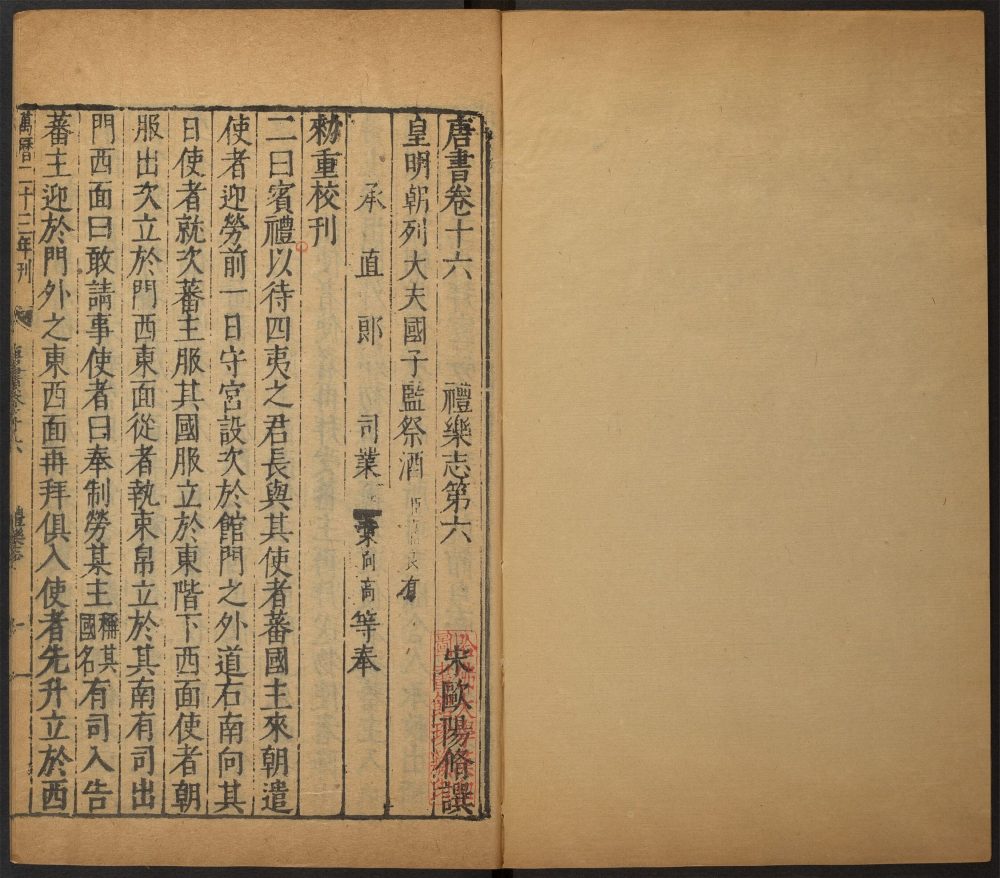 唐書卷十六 禮樂志第六 宋歐陽脩譔
皇明朝列大夫國子監祭酒
承直郎 司業 葉向高等奉
勑重校刊
二曰賓禮以待四夷之君長與其使者蕃國主來朝遣
使者迎勞前一日守宮設次於館門之外道右南向其
日使者就次蕃主服其國服立於東階下西面使者朝
服出次立於門西東面從者執束帛立於其南有司出
門西面曰敢請事使者曰奉制勞某主稱其國名有司入告
蕃主迎於門外之東西面再拜俱入使者先升立於西
萬曆二十三年刊 唐書卷十六 禮樂志 一